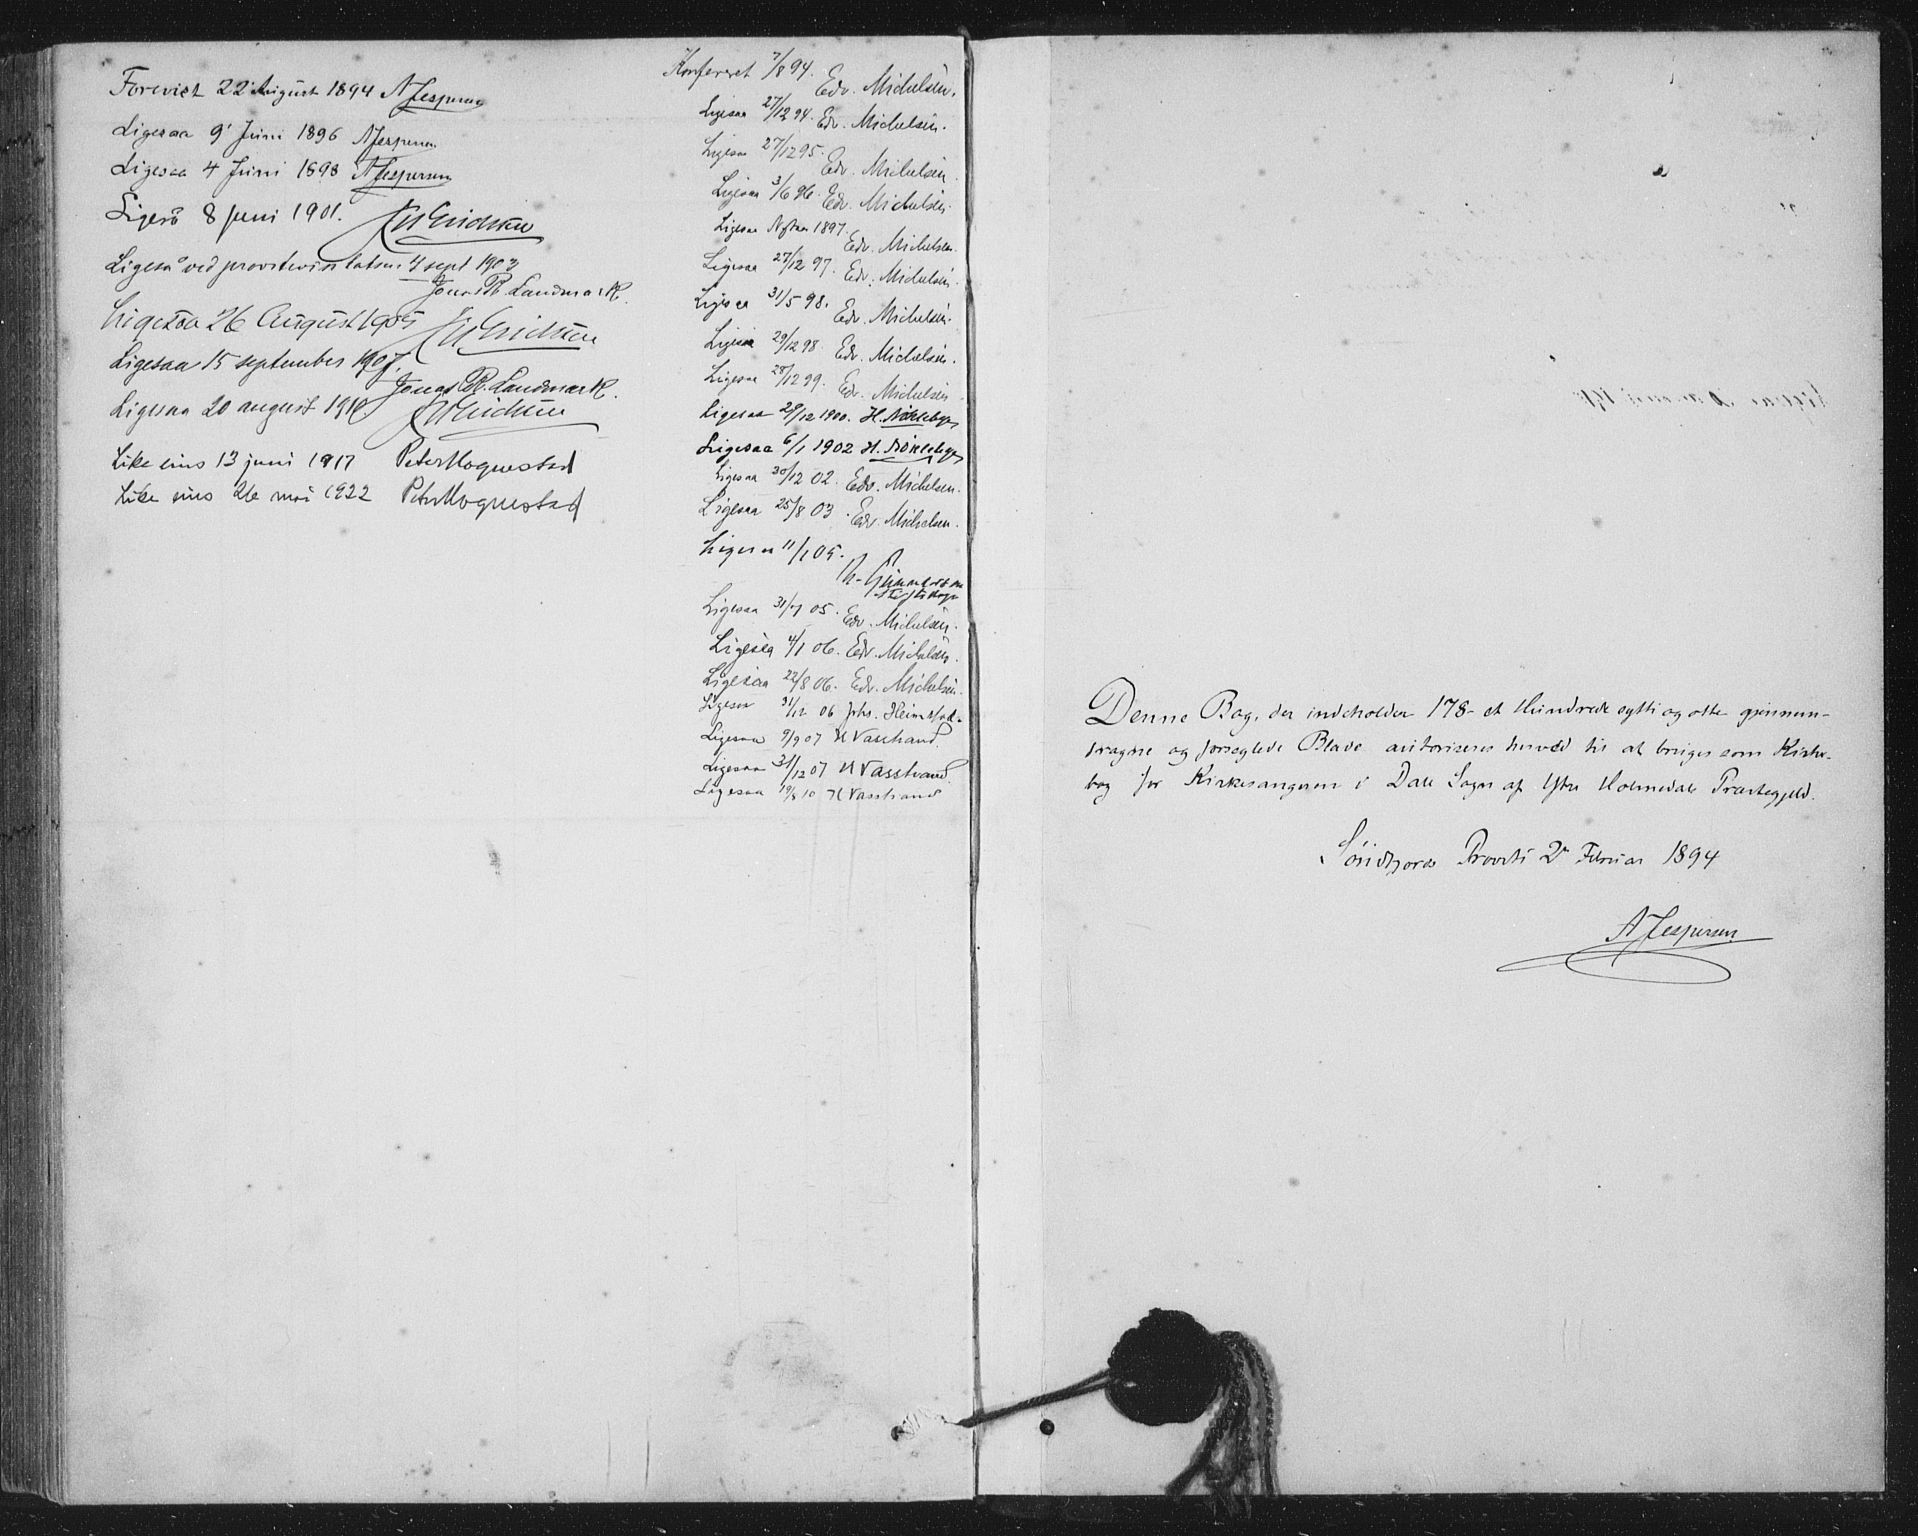 Forevist 22 August 1894 AJespersen
Ligesaa 9' Juni 1896 AJespersen
Ligesaa 4 Juni 1898 AJespersen
Ligeså 8 juni 1901.
Ligeså ved provstevisitatsen 4 sept 1903
Jonas R. Landmark.
Ligesaa 26 August 1905
Ligesaa 15 september 1907.
Jonas R. Landmark.
Ligesaa 20 august 1910.
Like eins 13 juni 1917 Peter Hognestad
Like eins 26 mai 1922 Peter Hognestad
Konfereret 7/8 94. Edv. Michelsen.
Ligesaa 27/12 94. Edv. Michelsen.
Ligesaa 27/12 95. Edv. Michelsen.
Ligesaa 3/6 96. Edv. Michelsen.
Ligesaa Nytaar 1897. Edv. Michelsen.
Ligesaa 27/12 97. Edv. Michelsen.
Ligesaa 31/5 98. Edv. Michelsen.
Ligesaa 29/12 98. Edv. Michelsen.
Ligesaa 28/12 99. Edv. Michelsen
Ligesaa 28/12 1900. H.
Ligesaa 6/1 1902 H.
Ligesaa 30/12 02. Edv. Michelsen.
Ligesaa 25/8 03. Edv. Michelsen.
Ligesaa 11/1 05.
Ligesaa 31/7 05. Edv. Michelsen.
Ligesaa 4/1 06. Edv. Michelsen.
Ligesaa 22/8 06. Edv. Michelsen.
Ligesaa 31/12 06 Johs. Heimstad.
Ligesaa 9/9 07 H Vasstrand.
Ligesaa 31/12 07 H Vasstrand.
Ligesaa 19/8 10 H Vasstrand
Denne Bog, der indeholder 178 - et Hundrede sytti og otte gjennem-
dragne og forseglede Blade autoriseres herved til at bruges som Kirke-
bog for Kirkesangeren i Dale Sogn af Ytre Holmedals Præstegjeld.
Söndfjords Provsti 2den Februar 1894
AJespersen